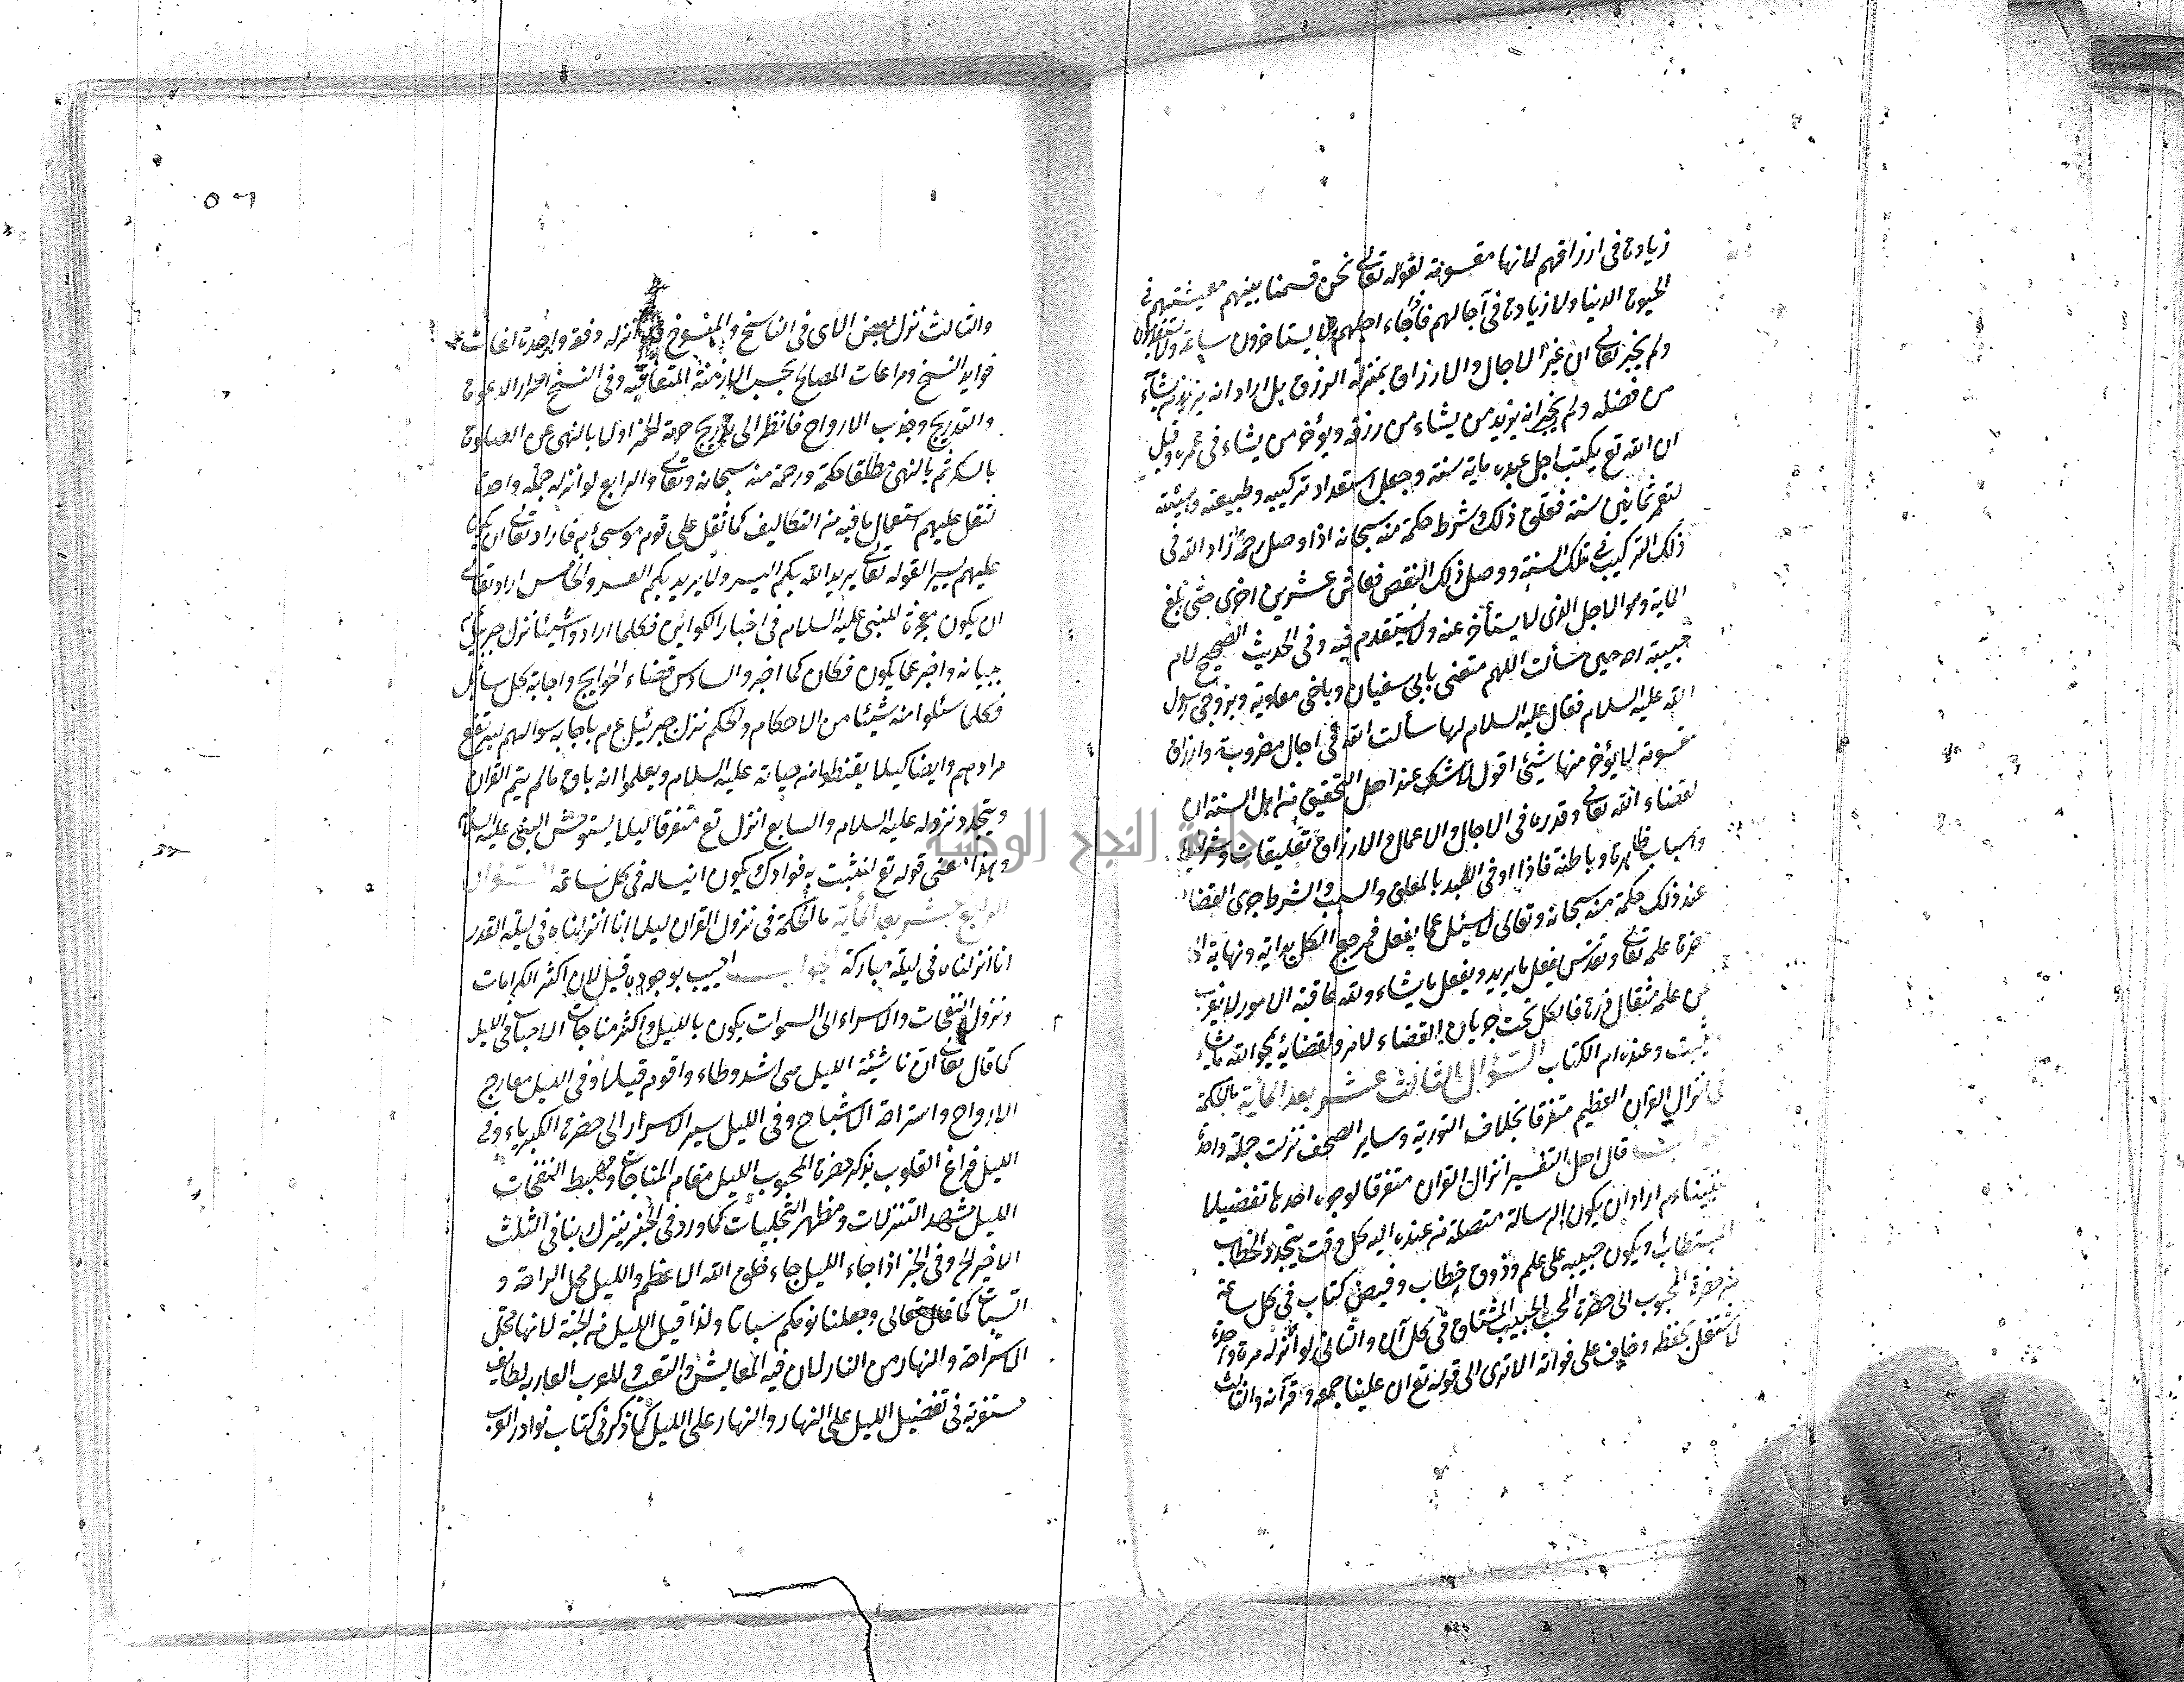 زيادة فى ارزاقهم لانها مقسومة لقوله تعالى نحن قسمنا بينهم معيشتهم فى
الحيوة الدنيا ولا زيادة فى آجالهم فاذا جاء اجلهم لا يستاخرون ساعة ولا يستقدمون
ولم يخبر تعالى ان غير الاجال والارزاق بمنزلة الرزق بل اراد انه يزيد لمن يشآء
من فضله ولم يخبر انه يزيد من يشاء من رزقه ويؤخر من يشاء فى عمره وقيل
ان الله تع يكتب اجل عبده ماية سنة وجعل استعداد تركيبه وطبيعته وهيئته
لتعمر ثمانين سنة فعلق ذلك وشرط حكمة منه سبحانه اذا وصل رحمه زاد الله فى
ذلك التركيب فى تلك السنة ووصل ذلك النقص فعاش عشرين اخرى حتى بلغ
الماية وهو الاجل الذى لا يستأخر عنه ولا يتقدم فيه وفى الحديث الصحيح لام
حبيبة رض حين سألت اللهم متعنى بابى سفيان وباخى معاوية وبزوجى رسول
الله عليه السلام فقال عليه السلام لها سألت الله فى اجال مضروبة وارزاق
مقسومة لا يؤخر منها شيئ اقول لا شك عند اهل التحقيق من اهل السنة ان
لقضاء الله تعالى وقدره فى الاجال والاعمال والارزاق تعليقات وشرايط
واسباب ظاهرة وباطنة فاذا اوفى العبد بالمعلق والسبب والشرط جرى القضاء
عند ذلك حكمة منه سبحانه وتعالى لا يسئل عما يفعل فمرجع الكل بداية ونهاية الى
حضرة علمه تعالى وتقدس يفعل ما يريد ويفعل ما يشاء ولله عاقبة الامور لا يعزب
من علمه مثقال ذرة فالكل تحت جريان القضاء لا مرد لقضاية يمحو الله ما يشاء
ويثبت وعنده ام الكتاب السؤال الثالث عشر بعد الماية ما الحكمة
فى انزال القرآن العظيم متفرقا بخلاف التورية وساير الصحف نزلت جملة واحدة
قال اهل التفسير انزال القرآن متفرقا لوجوه احدها تفضيلا
لنبينا عم اراد ان يكون الرسالة متصلة من عنده اليه كل وقت يتجدد الخطاب
المستطاب ويكون حبيبه على علم وذوق خطاب وفيض كتاب فى كل ساعة
من حضرة المحبوب الى حضرة المحب الحبيب المشتاق فى كل آن والثانى لو انزله مرة واحدة
لاشتغل بحفظه وخاف على فواته الا ترى الى قوله تع ان علينا جمعه وقرآنه والثالث
والثالث نزل بعض الاى فى الناسخ والمنسوخ انزله دفعة واحدة لفات
فوايد النسخ ومراعات المصالح بحسب الازمنة المتعاقبة وفى النسخ اسرار الدعوة
والتدريج وجذب الارواح فانظر الى تدريج حرمة الخمر اولا بالنهى عن الصلوة
بالسكر ثم بالنهى مطلقا حكمة ورحمة منه سبحانه وتعالى والرابع لو انزله جملة واحدة
لثقل عليهم استعمال ما فيه من التكاليف كما ثقل على قوم موسى عم فاراد تعالى ان يكون
عليهم يسيرا لقوله تعالى يريد الله بكم اليسر ولا يريد بكم العسر والخامس اراد تعالى
ان يكون معجزة للنبى عليه السلام فى اخبار الكوائن فكلما ارادوا شيئا نزل جبرئيل
ببيانه واخبر عما يكون فكان كما اخبر والسادس قضاء الحوايج واجابة لكل سائل
فكلما سئلوا منه شيئا من الاحكام والحكم نزل جبرئيل عم باجابة سوالهم ليرتفع
مرادهم وايضا كيلا يقنطوا من حياته عليه السلام ويعلموا انه باق ما لم يتم القرآن
ويتجدد نزوله عليه السلام والسابع انزل تع متفرقا ليلا يستوحش النبى عليه السلام
وهذا معنى قوله تع لنثبت به فؤادك ويكون انيسا له فى كل ساعة السؤال
الرابع عشر بعد الماية ما الحكمة فى نزول القرآن ليلا انا انزلناه فى ليلة القدر
انا انزلناه فى ليلة مباركة الجواب اجيب بوجوه قيل لان اكثر الكرامات
ونزول النفحات والاسراء الى السموات يكون بالليل واكثر مناجات الاحباب فى الليل
كما قال تعالى ان ناشئة الليل هى اشد وطاء واقوم قيلا وفى الليل معارج
الارواح واستراحة الاشباح وفى الليل سير الاسرار الى حضرة الكبرياء وفى
الليل فراغ القلوب بذكر حضرة المحبوب الليل مقام المناجات ومهبط النفحات
الليل مشهد التنزلات ومظهر التجليات كما ورد فى الخبر ينزل ربنا فى الثلث
الاخير الخ وفى الخبر اذا جاء الليل جاء خلق الله الاعظم والليل محل الراحة و
السبات كما قال تعالى وجعلنا نومكم سباتا ولذا قيل الليل من الجنة لانها محل
الاستراحة والنهار من النار لان فيه المعايش والتعب وللعرب العاربة لطايف
مستغربة فى تفضيل الليل على النهار والنهار على الليل كما ذكر فى كتاب نوادر العرب
جامعة النجاح الوطنية